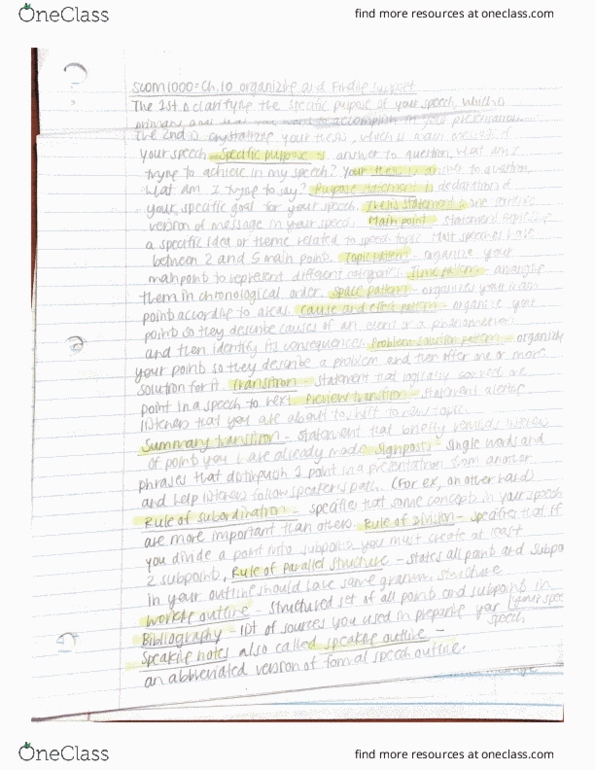 OneClass
find more resources at oneclass.com
SCOM1000=Ch.10 organizing and Finding support
The 1st is clarifying the specific purpose of your speech, which is
primary goal that you want to accomplish in your presentation.
The 2nd is crystallizing your thesis, which is main message of
your speech. Specific purpose is answer to question, What am I
trying to achieve in my speech? Your thesis is answer to question,
what am I trying to say? Purpose statement is declaration of
your specific goal for your speech. Thesis statement is one sentence
version of message in your speech. Main point - statement expressing
a specific idea or theme related to speech topic. Most speeches have
between 2 and 5 main point. Topic pattern - organize your
main point to represent different categories. Time pattern - arranging
them in chronological order. Space pattern - organizes your main
point according to areas. Cause and effect pattern - organize your
points so they describe causes of an event or a phenomenon
and then identify its consequences. Problem solution pattern - organize
your points so they describe a problem and then offer one or more
solution for it. Transition - statement that logically connect one
point in a speech to next. Preview transition - statement alerting
listeners that you are about to shift to new topic.
Summary transition - statement that briefly reminds listeners
of point you have already made. Signposts - single words and
phrases that distinguish 1 point in a presentation from another
and help listeners follow speaker's path. (For ex, on other hand)
Rule of subordination - specifies that some concepts in your speech
are more important than others. Rule of division - specifies that if
you divide a point into subpoints you must create at least
2 subpoints. Rule of parallel structure - states all point and subpo
in your outline should have same gramm. structure
working outline - structured set of all point and subpoint in your spee
Bibliography - list of sources you used in preparing your speech.
Speaking notes also called speaking outline -
an abbreviated version of formal speech outline.
OneClass
find more resources at oneclass.com